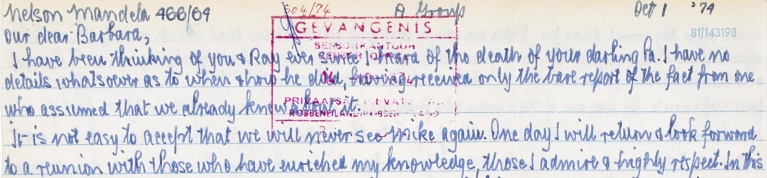 Nelson Mandela 466/64 A Group Oct 1 '79
81/143198
GEVANGENIS
SENSORKANTOOR
Our dear Barbara,
I have been thinking of you & Ray ever since I heard of the death of your darling Pa. I have no
details whatsoever as to when & how he died, having received only the bare report of the fact from one
who assumed that we already knew about it.
It is not easy to accept that we will never see Mike again. One day I will return & look forward
to a reunion with those who have enriched my knowledge, those I admire & highly respect. In this